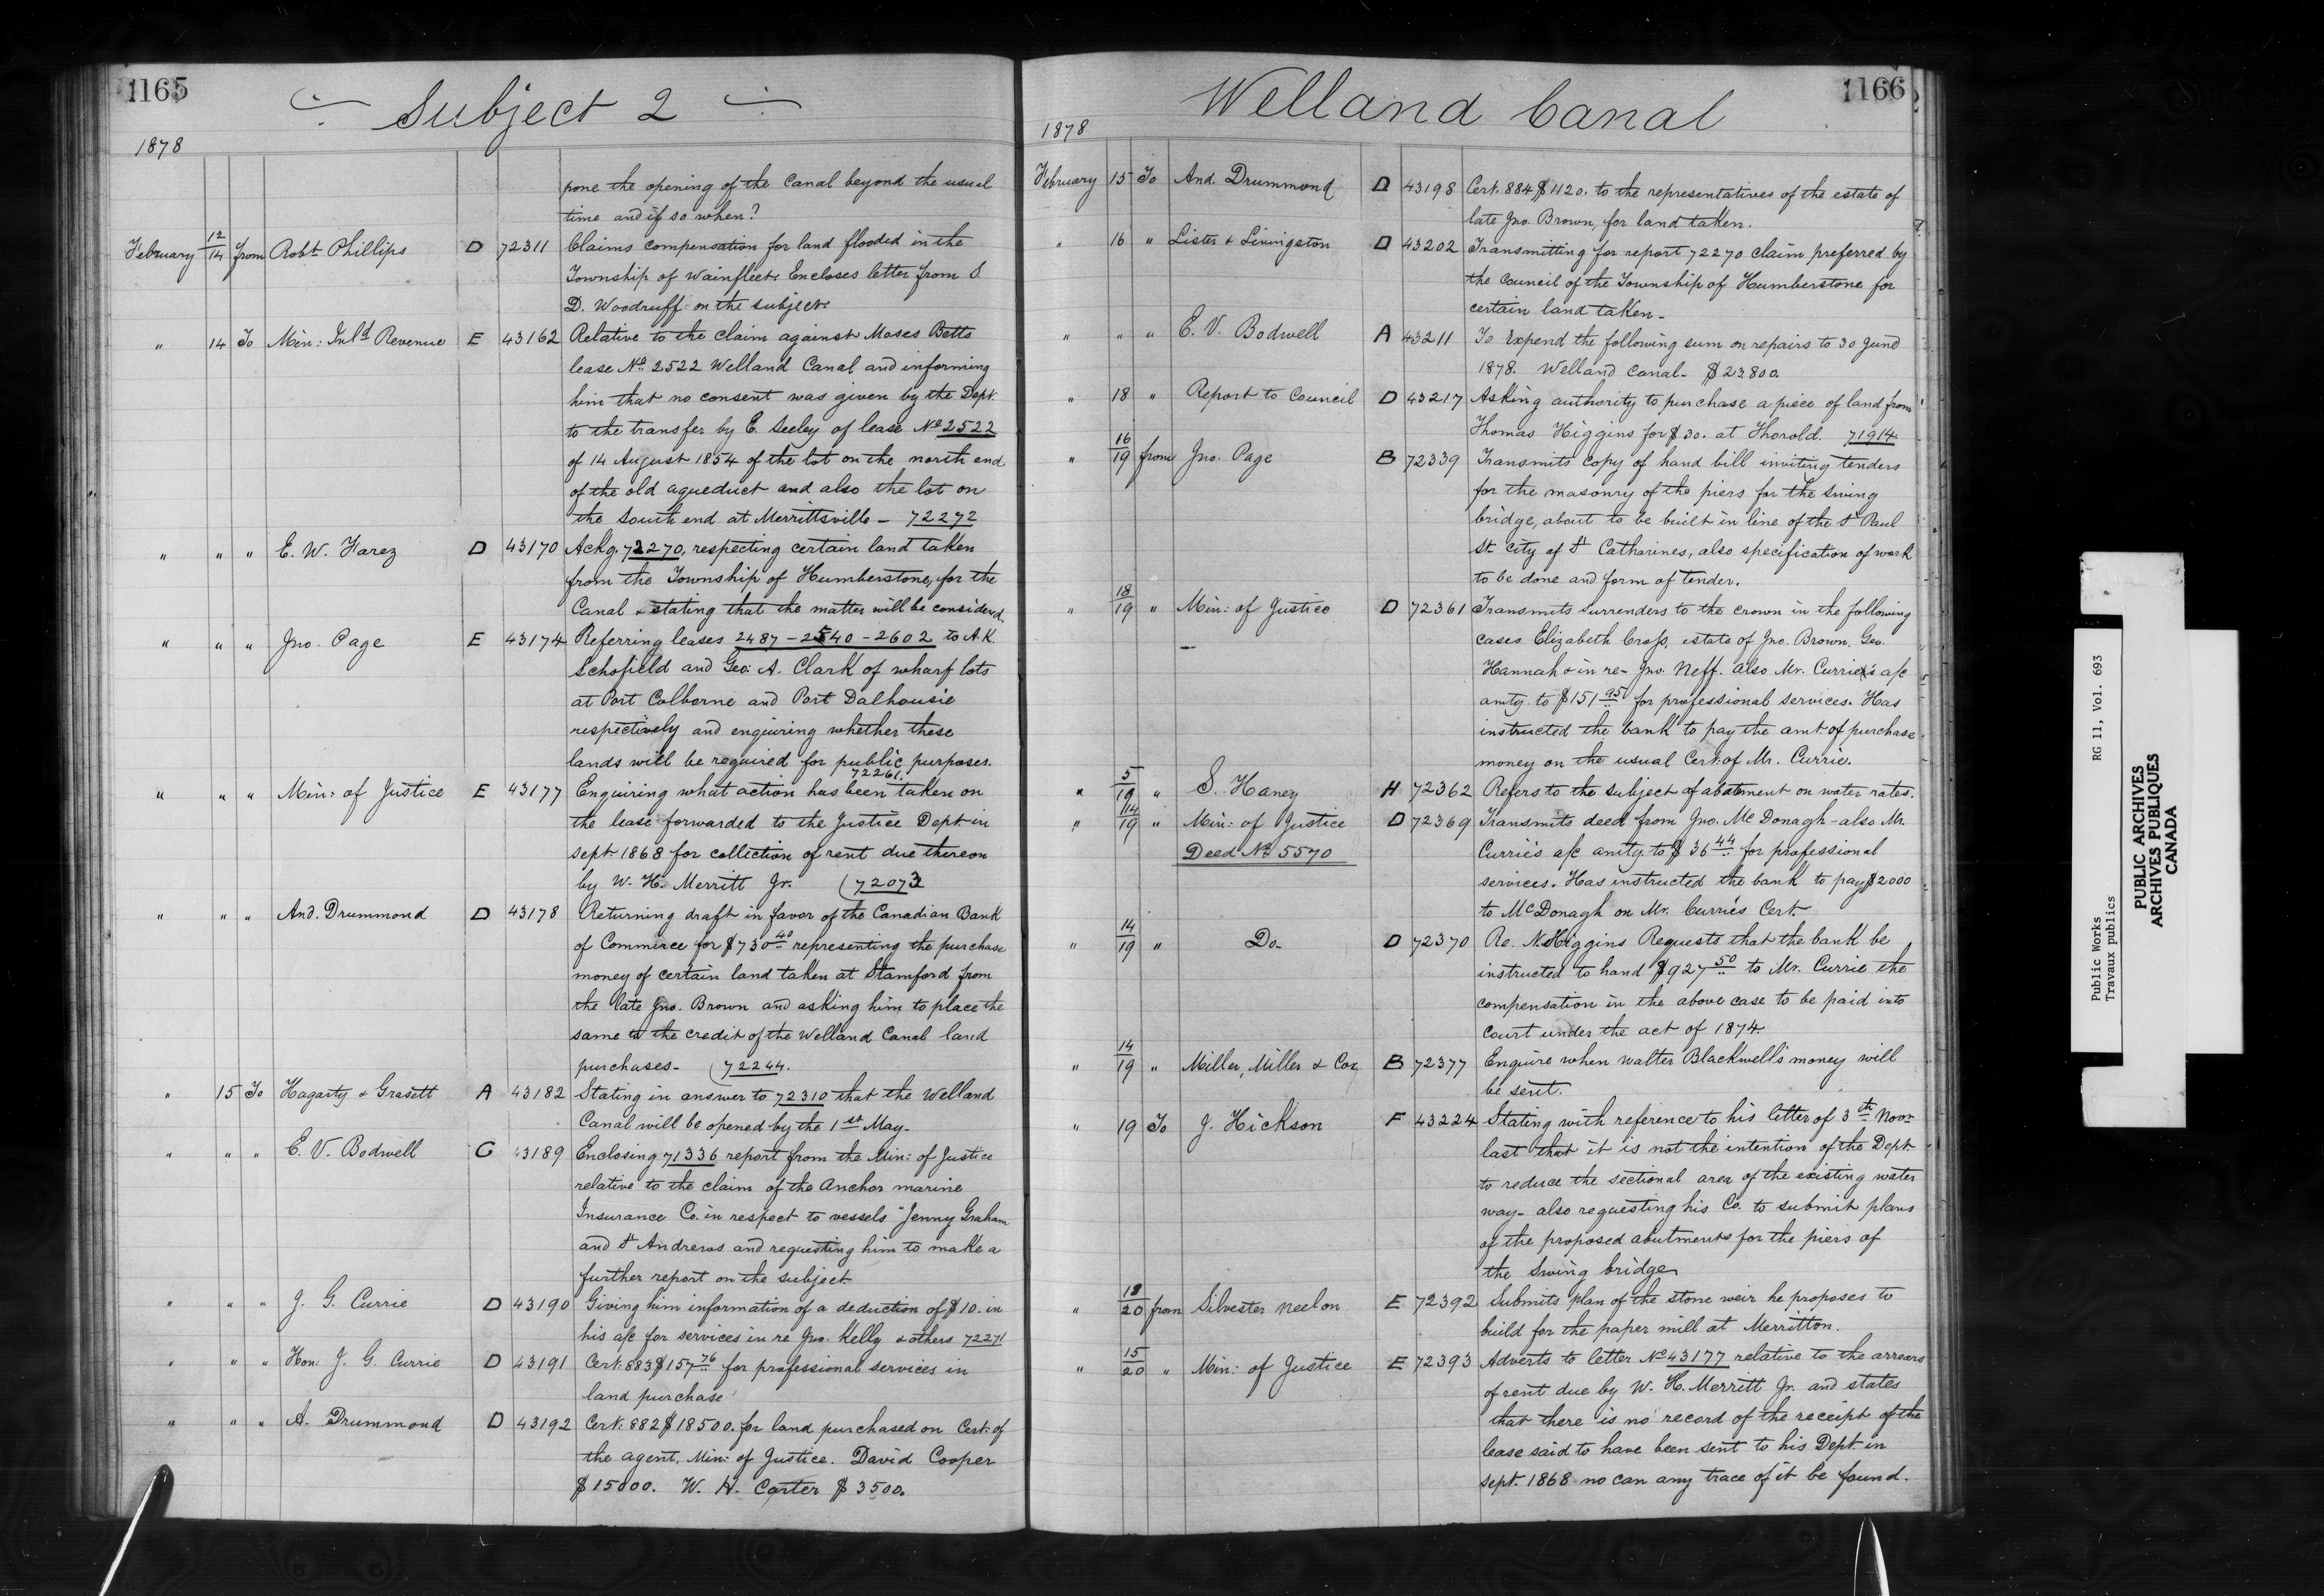 1165
Subject 2
1878
pone the opening of the Canal beyond the usual
time and if so when?
February 12/14 from Robt Phillips D 72311 Claims compensation for land flooded in the
Township of Wainfleet. Encloses letter from S.
D. Woodruff on the subject.
" 14 To Min: Inld Revenue E 43162 Relative to the claim against Moses Betts
lease No. 2522 Welland Canal and informing
him that no consent was given by the Dept.
to the transfer by E. Seeley of lease No 2522
of 14 August 1854 of the lot on the north end
of the old aqueduct and also the lot on
the South end at Merrittsville - 72272
" " " E. W. Farez D 43170 Ackg. 72270, respecting certain land taken
from the Township of Humberstone, for the
Canal & stating that the matter will be considered.
" " " Jno. Page E 43174 Referring leases 2487 - 2540 - 2602 to A.K.
Schofield and Geo: A. Clark of wharf lots
at Port Colborne and Port Dalhousie
respectively and enquiring whether these
lands will be required for public purposes.
72261.
" " " Min: of Justice E 43177 Enquiring what action has been taken on
the lease forwarded to the Justice Dept. in
Sept. 1868 for collection of rent due thereon
by W. H. Merritt Jr. (72073
" " " And. Drummond D 43178 Returning draft in favor of the Canadian Bank
of Commerce for $730 40 representing the purchase
money of certain land taken at Stamford from
the late Jno. Brown and asking him to place the
same to the credit of the Welland Canal land
purchases - (72244.
" 15 To Hagarty & Grasett A 43182 Stating in answer to 72310 that the Welland
Canal will be opened by the 1st May -
" " " E. V. Bodwell G 43189 Enclosing 71336 report from the Min: of Justice
relative to the claim of the Anchor marine
Insurance Co. in respect to vessels "Jenny Graham
and St Andrews and requesting him to make a
further report on the subject
" " " J. G. Currie D 43190 Giving him information of a deduction of $10. in
his a/c for services in re Jno. Kelly & others 72271
" " " Hon: J. G. Currie D 43191 Cert: 883 $157 76 for professional services in
land purchase
" " " A. Drummond D 43192 Cert: 882 $18500. for land purchased on Cert: of
the agent. Min: of Justice. David Cooper
$15000. W. H. Carter $3500.
1166
Welland Canal
1878
February 15 To And. Drummond D 43198 Cert. 884 $1120. to the representatives of the estate of
late Jno. Brown, for land taken.
" 16 " Lister & Livingston D 43202 Transmitting for report 72270 claim preferred by
the Council of the Township of Humberstone for
certain land taken -
" " " E. V. Bodwell A 43211 To Expend the following sum on repairs to 30 June
1878. Welland Canal - $23800.
" 18 " Report to Council D 43217 Asking authority to purchase a piece of land from
Thomas Higgins for $30. at Thorold. 71914
" 16/19 from Jno. Page B 72339 Transmits copy of hand bill inviting tenders
for the masonry of the piers for the Swing
bridge, about to be built in line of the St Paul
St. City of St Catharines, also specification of work
to be done and form of tender.
" 18/19 " Min: of Justice D 72361 Transmits surrenders to the crown in the following
cases Elizabeth Cross, estate of Jno. Brown, Geo.
Hannah & in re - Jno. Neff. also Mr. Currie's a/c
amtg. to $151 95 for professional services. Has
instructed the bank to pay the amt. of purchase
money on the usual Cert: of Mr. Currie.
" 5/19 " S. Haney H 72362 Refers to the subject of abatement on water rates.
" 14/19 " Min: of Justice D 72369 Transmits deed from Jno. McDonagh - also Mr.
Deed No 5570
Currie's a/c amtg. to $36 44 for professional
services. Has instructed the bank to pay $2000
to McDonagh on Mr. Currie's Cert.
" 14/19 " Do - D 72370 Re. N. Higgins Requests that the bank be
instructed to hand $927 50 to Mr. Currie the
compensation in the above case to be paid into
Court under the act of 1874.
" 14/19 " Miller, Miller & Cox B 72377 Enquire when Walter Blackwell's money will
be sent.
" 19 To J. Hickson F 43224 Stating with reference to his letter of 3th Novr
last that it is not the intention of the Dept.
to reduce the sectional area of the existing water
way - also requesting his Co. to submit plans
of the proposed abutments for the piers of
the Swing bridge
" 18/20 from Silvester Neelon E 72392 Submits plan of the stone weir he proposes to
build for the paper mill at Merritton.
" 15/20 " Min: of Justice E 72393 Adverts to letter No 43177 relative to the arrears
of rent due by W. H. Merritt Jr. and states
that there is no record of the receipt of the
lease said to have been sent to his Dept. in
Sept. 1868 no can any trace of it be found.
Public Works RG 11, Vol. 693
Travaux publics
PUBLIC ARCHIVES
ARCHIVES PUBLIQUES
CANADA